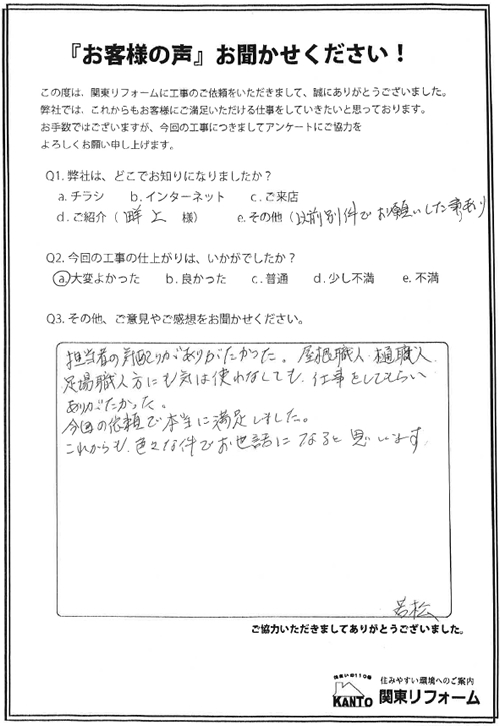 『お客様の声』お聞かせください！
この度は、関東リフォームに工事のご依頼をいただきまして、誠にありがとうございました。
弊社では、これからもお客様にご満足いただける仕事をしていきたいと思っております。
お手数ではございますが、今回の工事につきましてアンケートにご協力を
よろしくお願い申し上げます。
Q1. 弊社は、どこでお知りになりましたか？
a. チラシ b. インターネット c. ご来店
d. ご紹介（ 畔上 様） e. その他（以前別件でお願いした事あり
Q2. 今回の工事の仕上がりは、いかがでしたか？
a. 大変よかった b. 良かった c. 普通 d. 少し不満 e. 不満
Q3. その他、ご意見やご感想をお聞かせください。
担当者の気配りがありがたかった。屋根職人、樋職人、
足場職人方にも気は使わなしても、仕事をしてもらい
ありがたかった。
今回の依頼で本当に満足しました。
これからも、色々な件でお世話になると思います。
若松
ご協力いただきましてありがとうございました。
住まいの110番
KANTO
住みやすい環境へのご案内
関東リフォーム